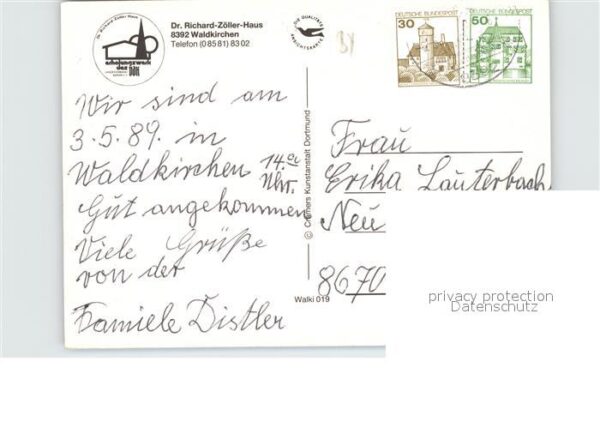 Dr. Richard-Zöller-Haus
8392 Waldkirchen
Telefon (0 85 81) 83 02
Dr. Richard Zöller Haus
erholungswerk
des
DIE QUALITÄTS
ANSICHTSKARTE
DEUTSCHE BUNDESPOST
30
DEUTSCHE BUNDESPOST
50
Wir sind am
3.5.89. in
Waldkirchen 14.00
Uhr.
Gut angekommen
Viele Grüße
von der
Famiele Distler
© Cramers Kunstanstalt Dortmund
Walki 019
Frau
Erika Lauterbach
Neu
8670
privacy protection
Datenschutz